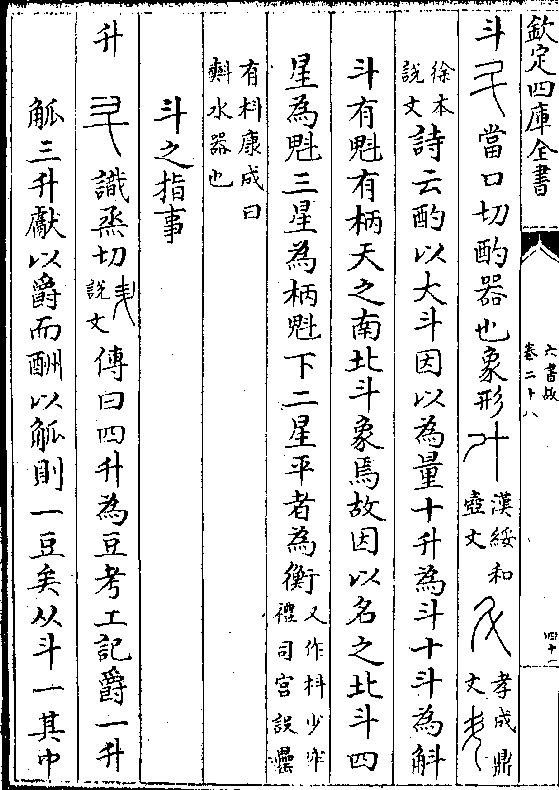 欽定四庫全書
六書故
卷二十八
四十二
斗 當口切酌器也象形 漢綏和壺文 孝成鼎文
徐本說文 詩云酌以大斗因以為量十升為斗十斗為斛
斗有魁有柄天之南北斗象焉故因以名之北斗四
星為魁三星為柄魁下二星平者為衡 又作枓少牢禮司宮設罍
有枓康成曰㪺水器也
斗之指事
升 識烝切 說文 傳曰四升為豆考工記爵一升
觚三升獻以爵而酬以觚則一豆矣从斗一其中